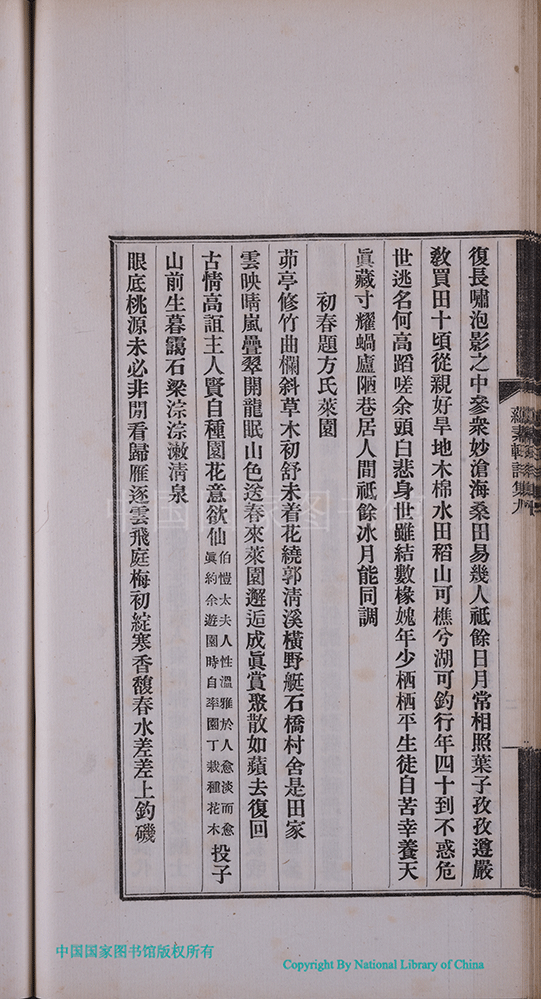 復長嘯泡影之中參衆妙滄海桑田易幾人祇餘日月常相照葉子孜孜遵嚴
敎買田十頃從親好旱地木棉水田稻山可樵兮湖可釣行年四十到不惑危
世逃名何高蹈嗟余頭白悲身世雖結數椽媿年少栖栖平生徒自苦幸養天
眞藏寸耀蝸廬陋巷居人間祇餘冰月能同調
初春題方氏萊園
茆亭修竹曲欄斜草木初舒未着花繞郭淸溪橫野艇石橋村舍是田家
雲映晴嵐疊翠開龍眠山色送春來萊園邂逅成眞賞聚散如蘋去復回
古情高誼主人賢自種園花意欲仙伯愷太夫人性溫雅於人愈淡而愈眞約余遊園時自率園丁栽種花木投子
山前生暮靄石梁淙淙漱淸泉
眼底桃源未必非閒看歸雁逐雲飛庭梅初綻寒香馥春水差差上釣磯
中国国家图书馆版权所有
Copyright By National Library of China